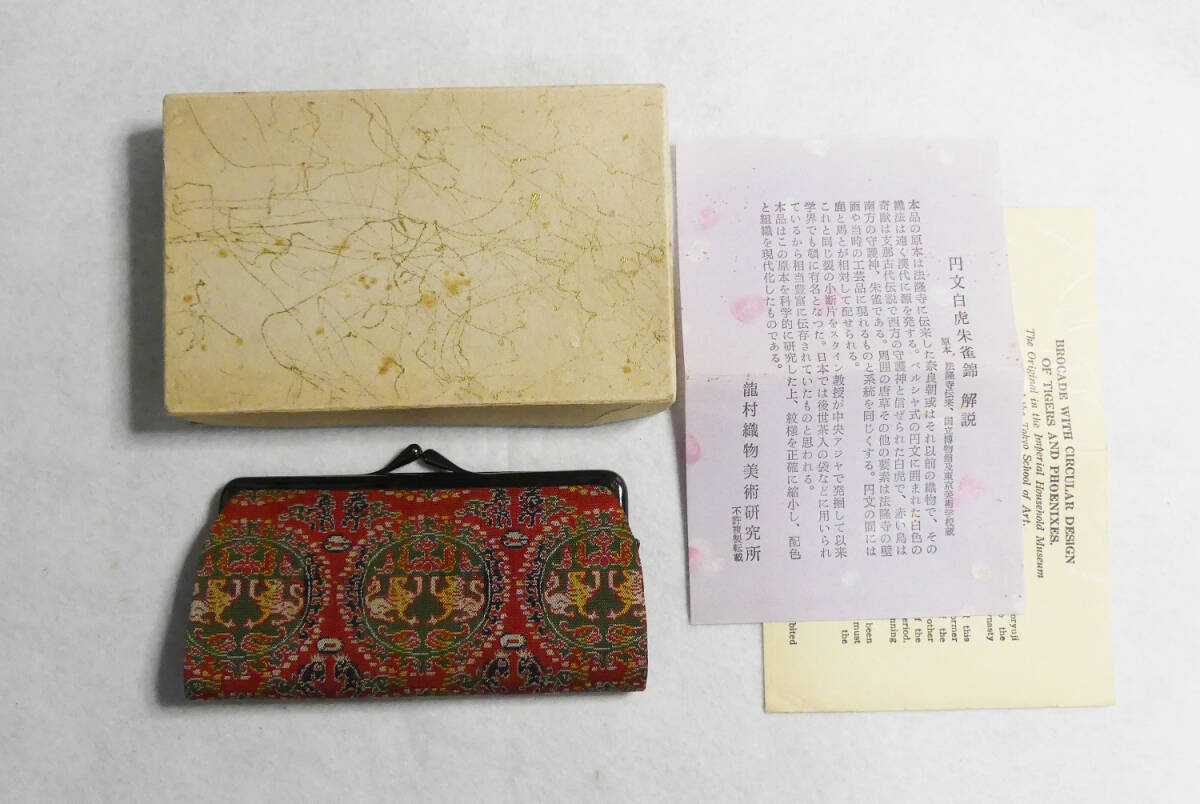 円文白虎朱雀錦 解説
原本、法隆寺伝来、国立博物館及東京美術学校蔵
本品の原本は法隆寺に伝来した奈良朝或はそれ以前の織物で、その
織法は遠く漢代に源を発する。ペルシャ式の円文に囲まれた白色の
奇獣は支那古代伝説で西方の守護神と信ぜられた白虎で、赤い鳥は
南方の守護神、朱雀である。周囲の唐草その他の要素は法隆寺の壁
画や当時の工芸品に現れるものと系統を同じくする。円文の間には
鹿と馬とが相対して配せられる。
これと同じ裂の小断片をスタイン教授が中央アジヤで発掘して以来
学界でも頓に有名となつた。日本では後世茶入の袋などに用いられ
ているから相当豊富に伝存されていたものと思われる。
本品はこの原本を科学的に研究した上、紋様を正確に縮小し、配色
と組織を現代化したものである。
龍村織物美術研究所
不許複製転載
BROCADE WITH CIRCULAR DESIGN
OF TIGERS AND PHOENIXES.
The Original in the Imperial Household Museum
the Tokyo School of Art.
oryuji
the
nasty
this
ormer
the
other
f the
eriod.
nning
been
must
the
bited